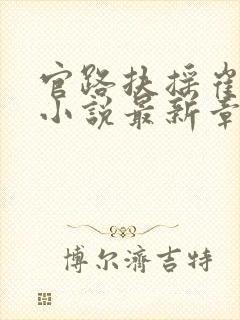 官路扶摇崔
小说最新章
博尔济吉特